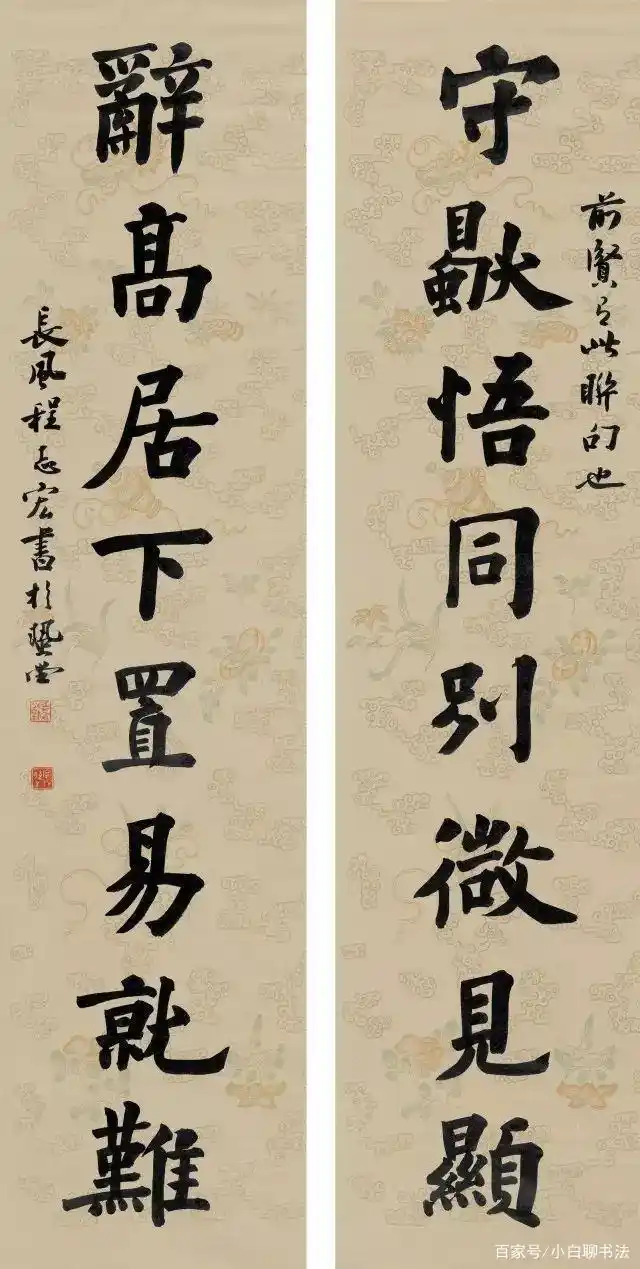 守默悟同别微見顯
前賢有此聯句也
辭高居下置易就難
長風程志宏書於藝堂
百家号/小白聊书法